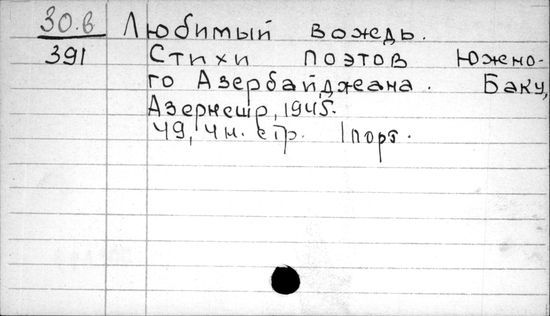 30.в Любимый вождь.
391 Стихи поэтов Южно-
го Азербайджана. Баку,
Азернешр, 1945.
49, 4 н. стр. 1 порт.